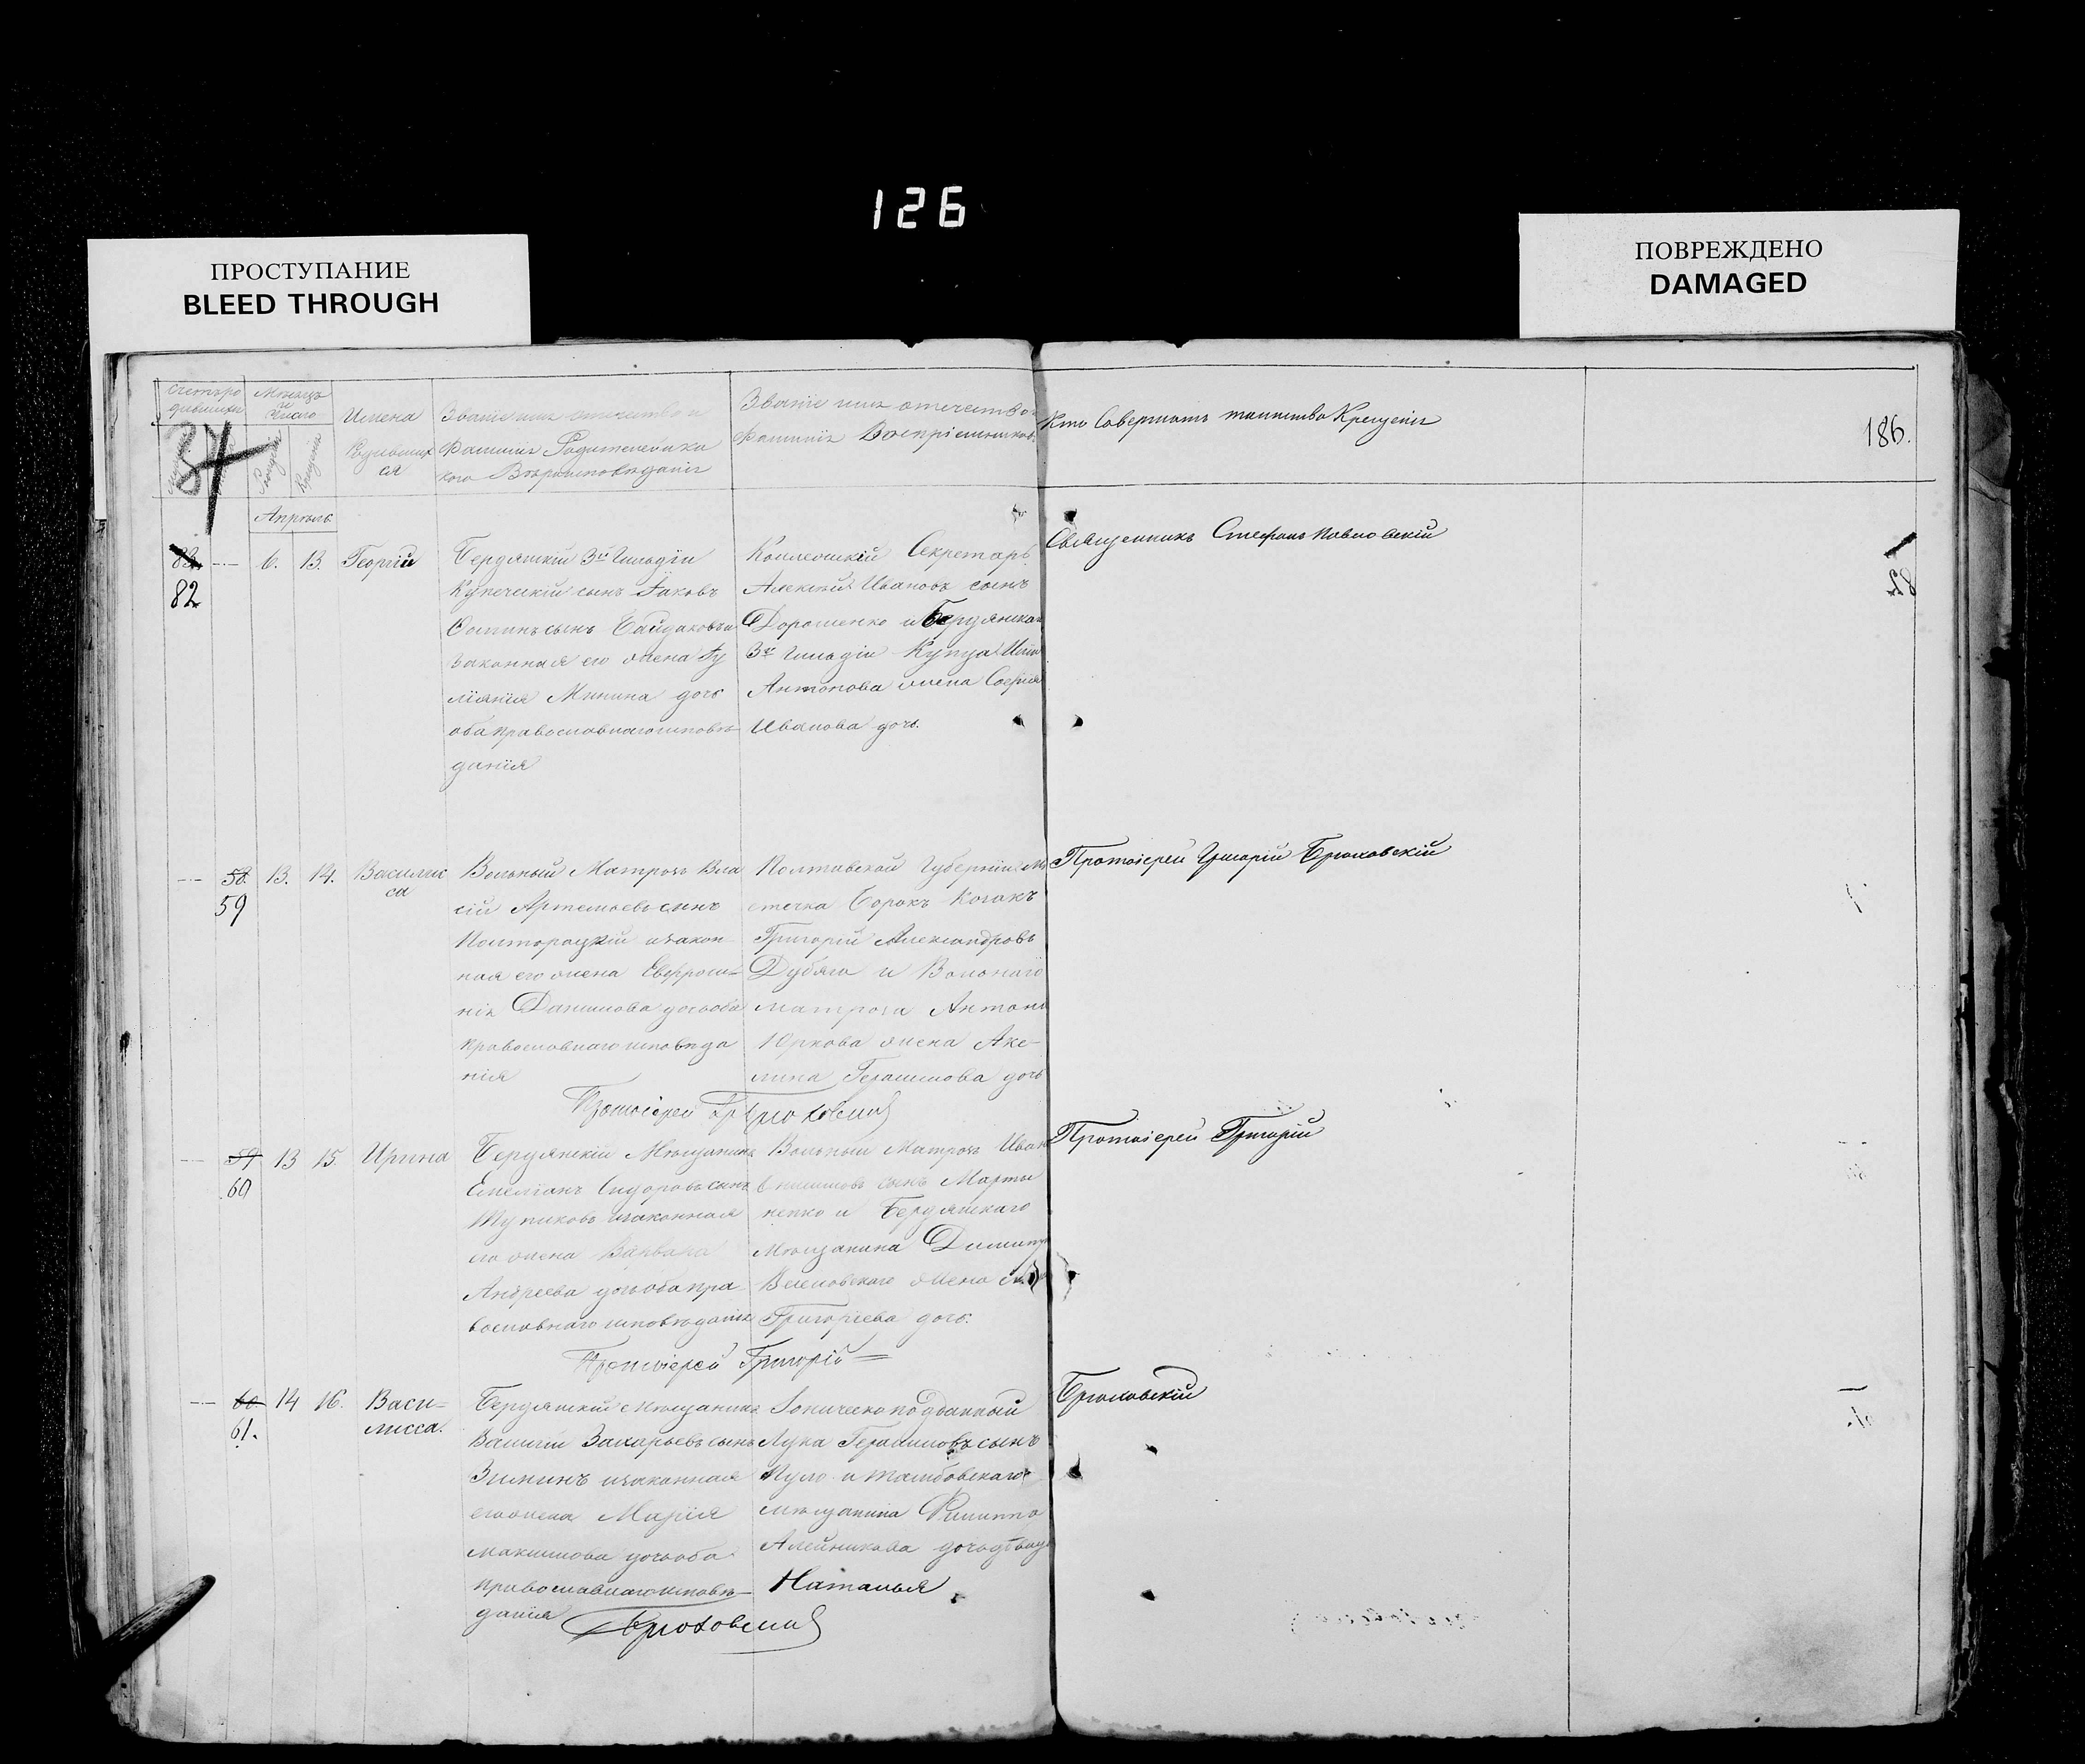 126
ПРОСТУПАНИЕ
BLEED THROUGH
ПОВРЕЖДЕНО
DAMAGED
Мѣсяцъ
и
число
Имена
Родившихся
Званіе имя отечество и
Фамилія Родителей и ка
кого Вѣроисповѣданія
Званіе имя отечество и
Фамилія Воспріемниковъ
Кто Совершалъ таинство Крещенія
186.
37
Апрѣль
83.
82
6.
13.
Георгій
Бердянскій 3й Гильдіи
Купеческій сынъ Іаковъ
Фоминъ сынъ Байдаковъ и
законная его жена Іу
ліанія Минина дочь
оба православнаго исповѣ-
данія
Коллежскій Секретарь
Алексѣй Ивановъ сынъ
Дорошенко и Бердянскаго
3й Гильдіи Купца
Антонова жена Софія
Иванова дочь.
Священникъ Стефанъ Павловскій
82
58.
59
13.
14.
Василис
са
Вольный Матрозъ Вла
сій Артемьевъ сынъ
Полторацкій и закон-
ная его жена Евфроси-
нія Данилова дочь оба
православнаго исповѣда
нія
Полтавской Губерніи Мѣ
стечка Борокъ Козакъ
Григорій Александровъ
Дубяга и Вольнаго
матроза Антона
Юркова жена Аке-
лина Герасимова дочь
Протоіерей Григорій Брюховскій
Протоіерей Гр. Брюховскій
59
60
13
15.
Ирина
Бердянскій Мѣщанинъ
Емеліанъ Сидоровъ сынъ
Тупиковъ и законная
его жена Варвара
Андреева дочь оба пра
вославнаго исповѣданія
Вольный Матрозъ Иванъ
сынъ Марты
ненко и Бердянскаго
Мѣщанина Димитр
Веселовскаго жена
Григоріева дочь.
Протоіерей Григорій
Протоіерей Григорій
60.
61.
14
16.
Васи-
лисса.
Бердянскій мѣщанинъ
Василій Захарьевъ сынъ
Зиминъ и законная
его жена Марія
Максимова дочь оба
православнаго исповѣ-
данія
Іоническо подданный
Лука Герасимовъ сынъ
Пуло и тамбовскаго
мѣщанина Филиппа
Алейникова дочь дѣвица
Наталья
Брюховскій
Брюховскій